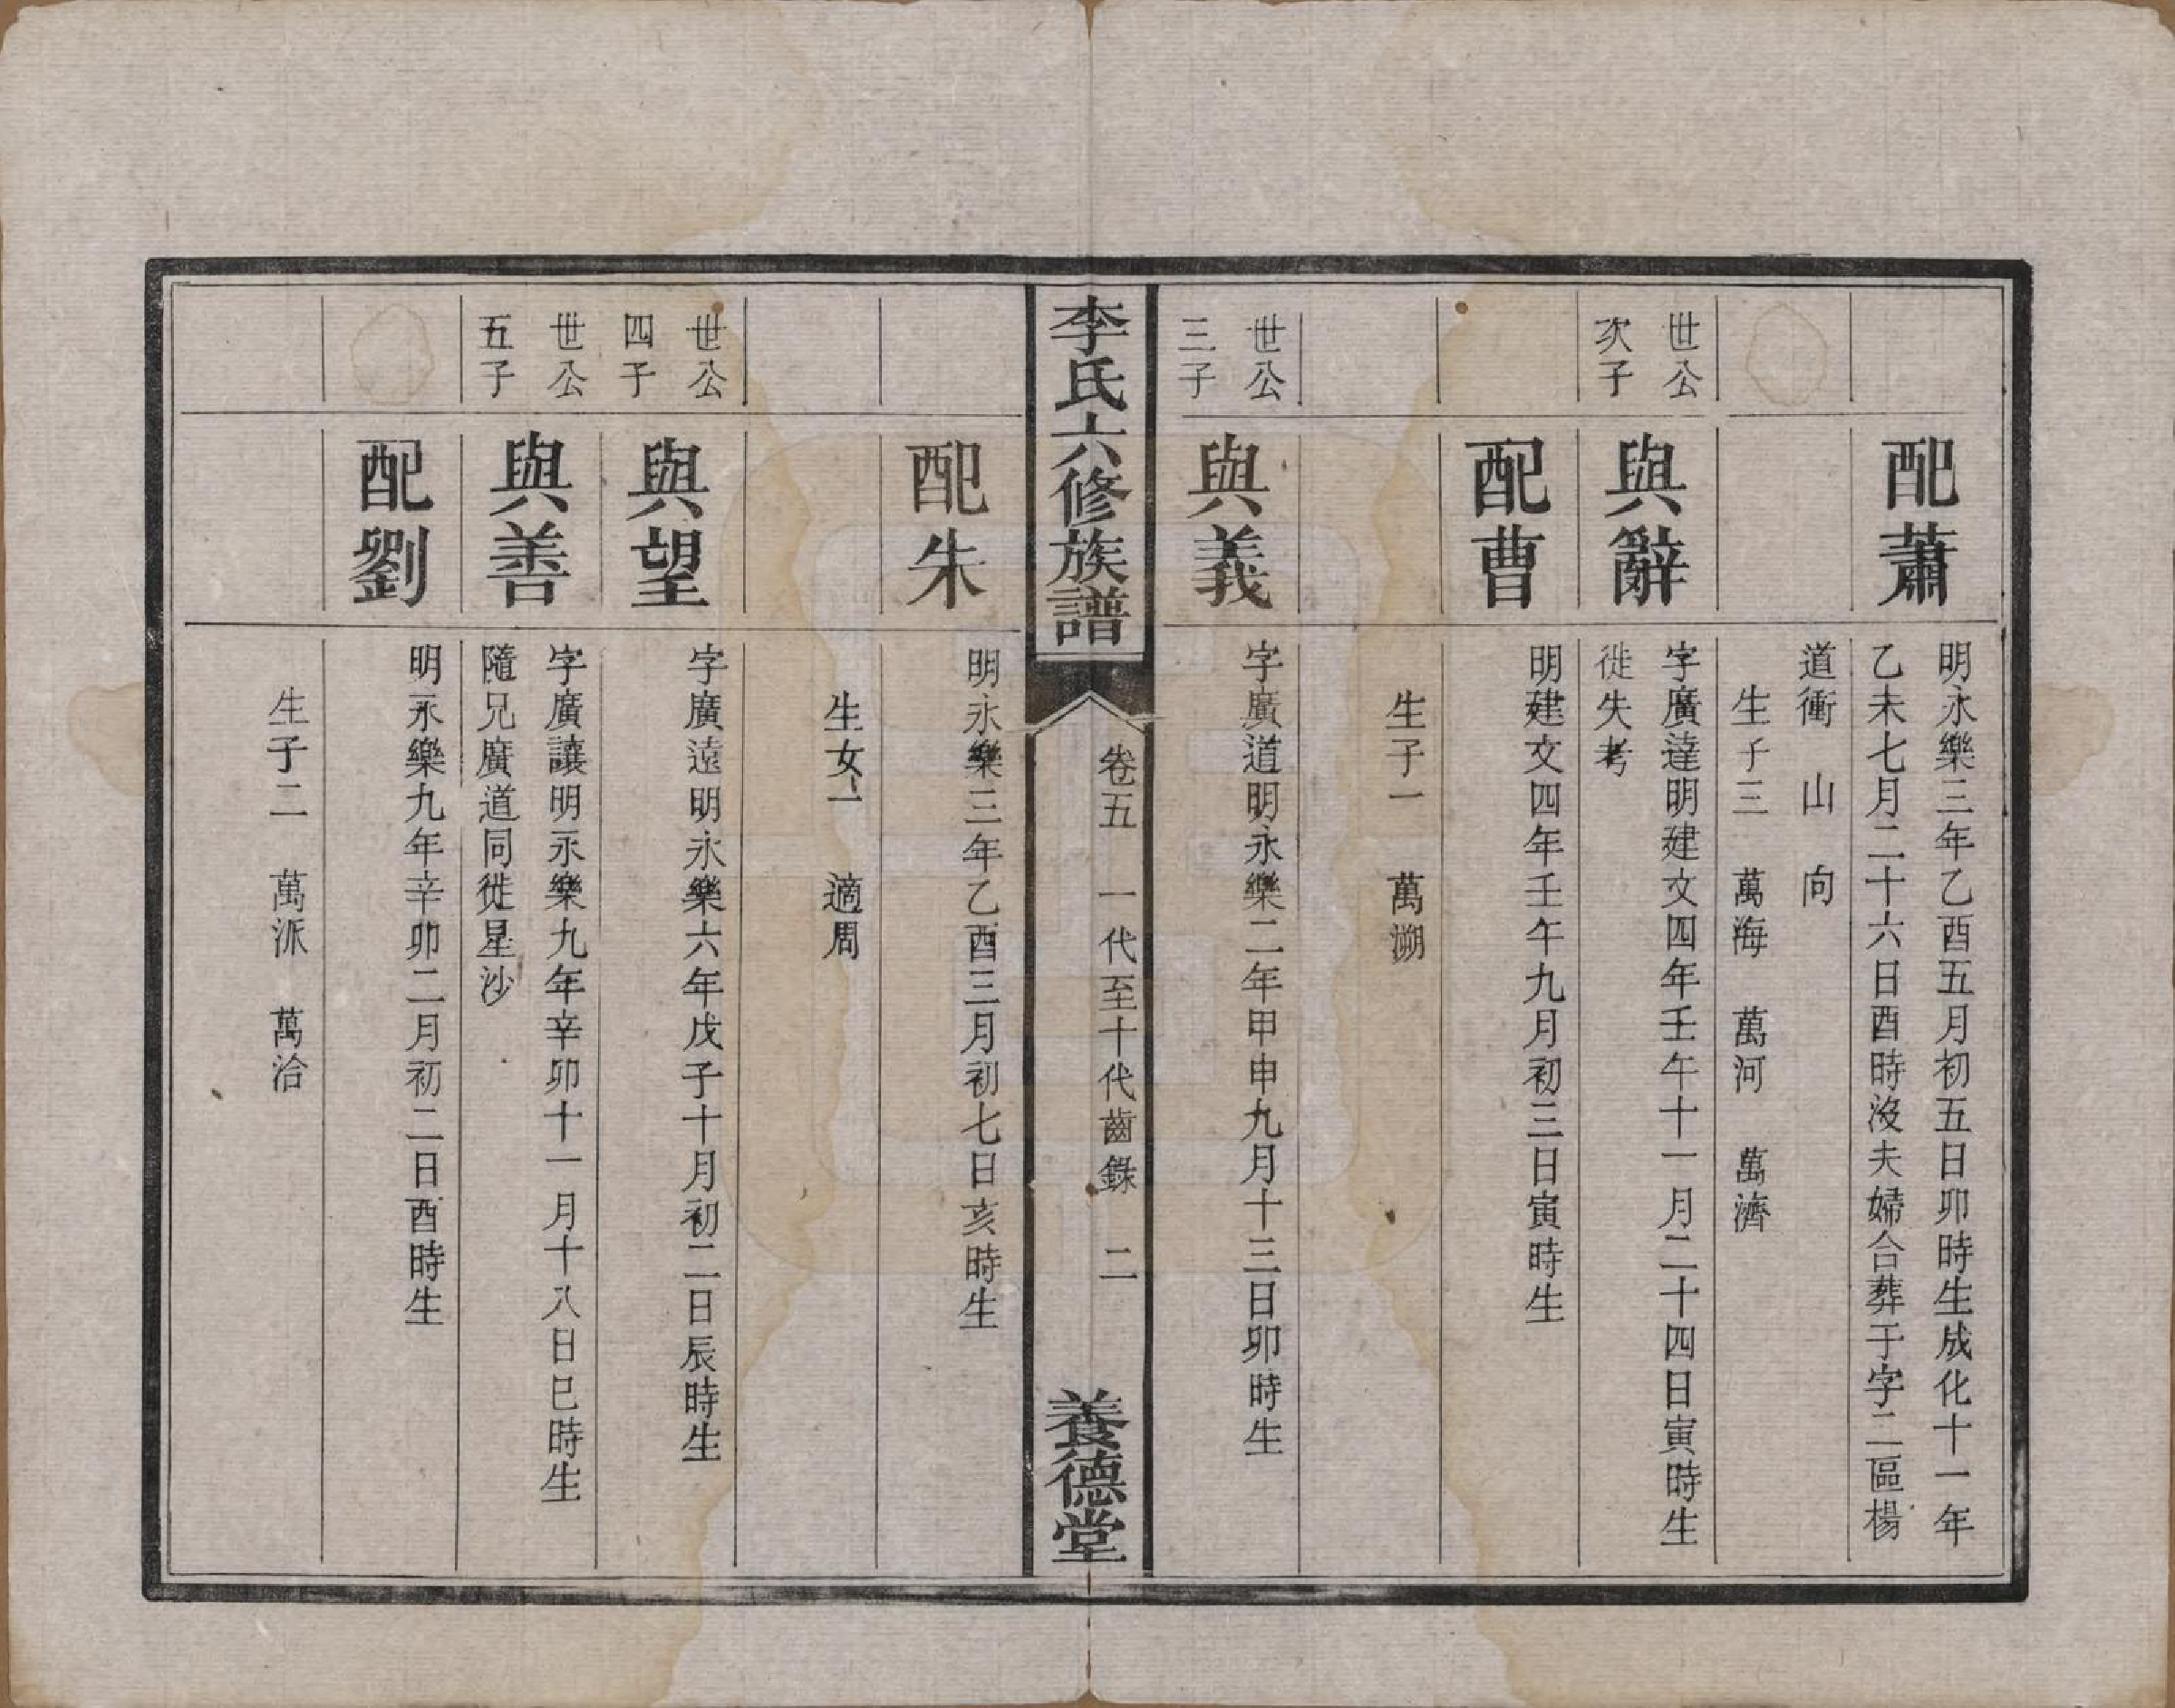 配蕭
明永樂三年乙酉五月初五日卯時生成化十一年
乙未七月二十六日酉時沒夫婦合葬于字二區楊
道衝　山　向
生子三　萬海　萬河　萬濟
世公
次子
與辭
字廣達明建文四年壬午十一月二十四日寅時生
徙失考
配曹
明建文四年壬午九月初三日寅時生
生子一　萬溯
世公
三子
與義
字廣道明永樂二年甲申九月十三日卯時生
李氏六修族譜
卷五　一代至十代齒錄　二
養德堂
配朱
明永樂三年乙酉三月初七日亥時生
生女一　適周
世公
四子
與望
字廣遠明永樂六年戊子十月初二日辰時生
世公
五子
與善
字廣讓明永樂九年辛卯十一月十八日巳時生
隨兄廣道同徙星沙
配劉
明永樂九年辛卯二月初二日酉時生
生子二　萬派　萬洽